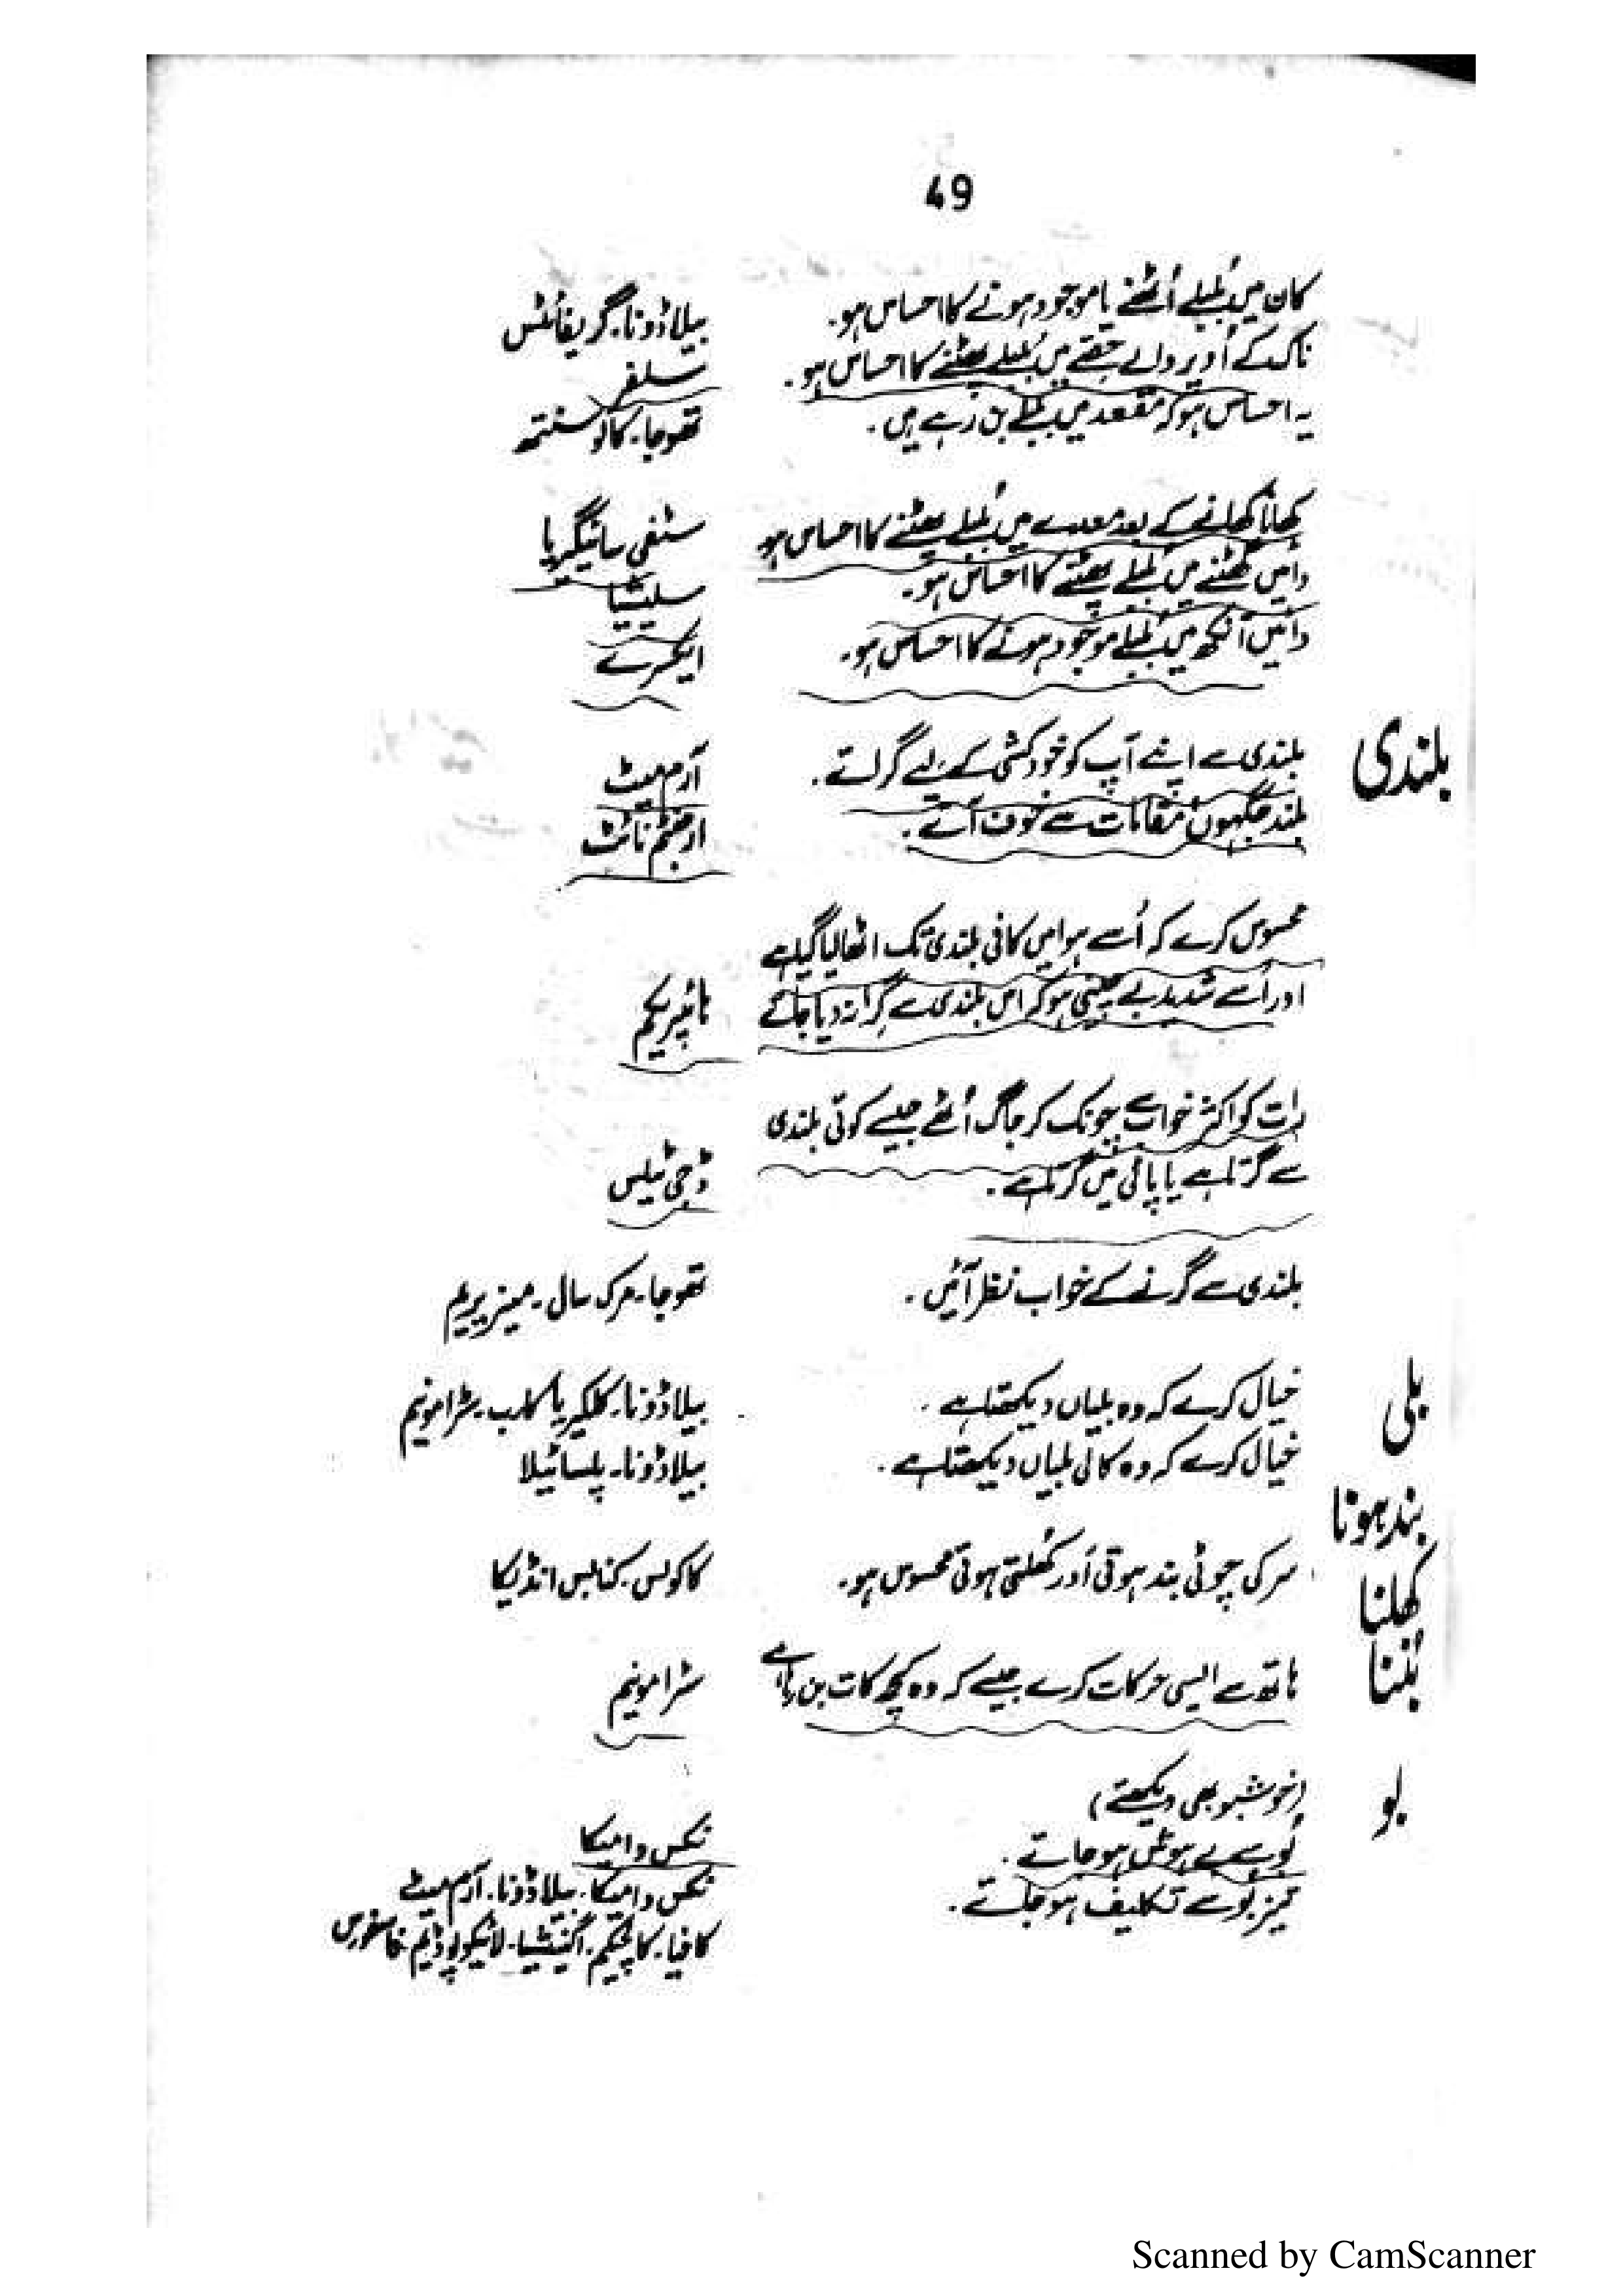 49
کان میں بُلبلے اُٹھنے یا موجود ہونے کا احساس ہو۔ بیلاڈونا۔ گریفائٹس
ناک کے اُوپر والے حصّے میں بُلبلے پھٹنے کا احساس ہو۔ سلفر
یہ احساس ہو کہ مقعد میں بلبلے بن رہے ہیں۔ تھوجا۔
کھانا کھانے کے بعد معدے میں بُلبلے پھٹنے کا احساس ہو سٹفی سائیگیریا
دائیں گھٹنے میں بُلبلے پھٹنے کا احساس ہو۔
دائیں آنکھ میں بُلبلے موجود ہونے کا احساس ہو۔ ایکسرے
بلندی
بلندی سے اپنے آپ کو خودکشی کے لیے گرائے۔ آرم میٹ
بلند جگہوں مقامات سے خوف آئے۔ ارجنٹم نائٹ
محسوس کرے کہ اُسے ہوا میں کافی بلندی تک اٹھا لیا گیا ہے
اور اُسے شدید بے چینی ہو کہ اس بلندی سے گرا نہ دیا جائے ہائپریکم
رات کو اکثر خواب سے چونک کر جاگ اُٹھے جیسے کوئی بلندی
سے گرتا ہے یا پانی میں گرتا ہے۔ ڈجی ٹیلس
بلندی سے گرنے کے خواب نظر آئیں۔ تھوجا۔ مرک سال۔ میزیریم
بلی
خیال کرے کہ وہ بلیاں دیکھتا ہے۔ بیلاڈونا۔ کلکیریا کارب۔ سٹرامونیم
خیال کرے کہ وہ کالی بلیاں دیکھتا ہے۔ بیلاڈونا۔ پلساٹیلا
بند ہونا
کھلنا
سر کی چوٹی بند ہوتی اور کُھلتی ہوئی محسوس ہو۔ کاکولس۔ کنابس انڈیکا
بُننا
ہاتھ سے ایسی حرکات کرے جیسے کہ وہ کچھ کات بن رہا ہے سٹرامونیم
بو
(خوشبو بھی دیکھئے)
بُو سے بے ہوش ہو جائے۔ نکس وامیکا
تیز بُو سے تکلیف ہو جائے۔ نکس وامیکا۔ بیلاڈونا۔ آرم میٹ
کافیا۔ کالچیکم۔ اگنیشیا۔ لائیکوپوڈیم۔ فاسفورس
Scanned by CamScanner